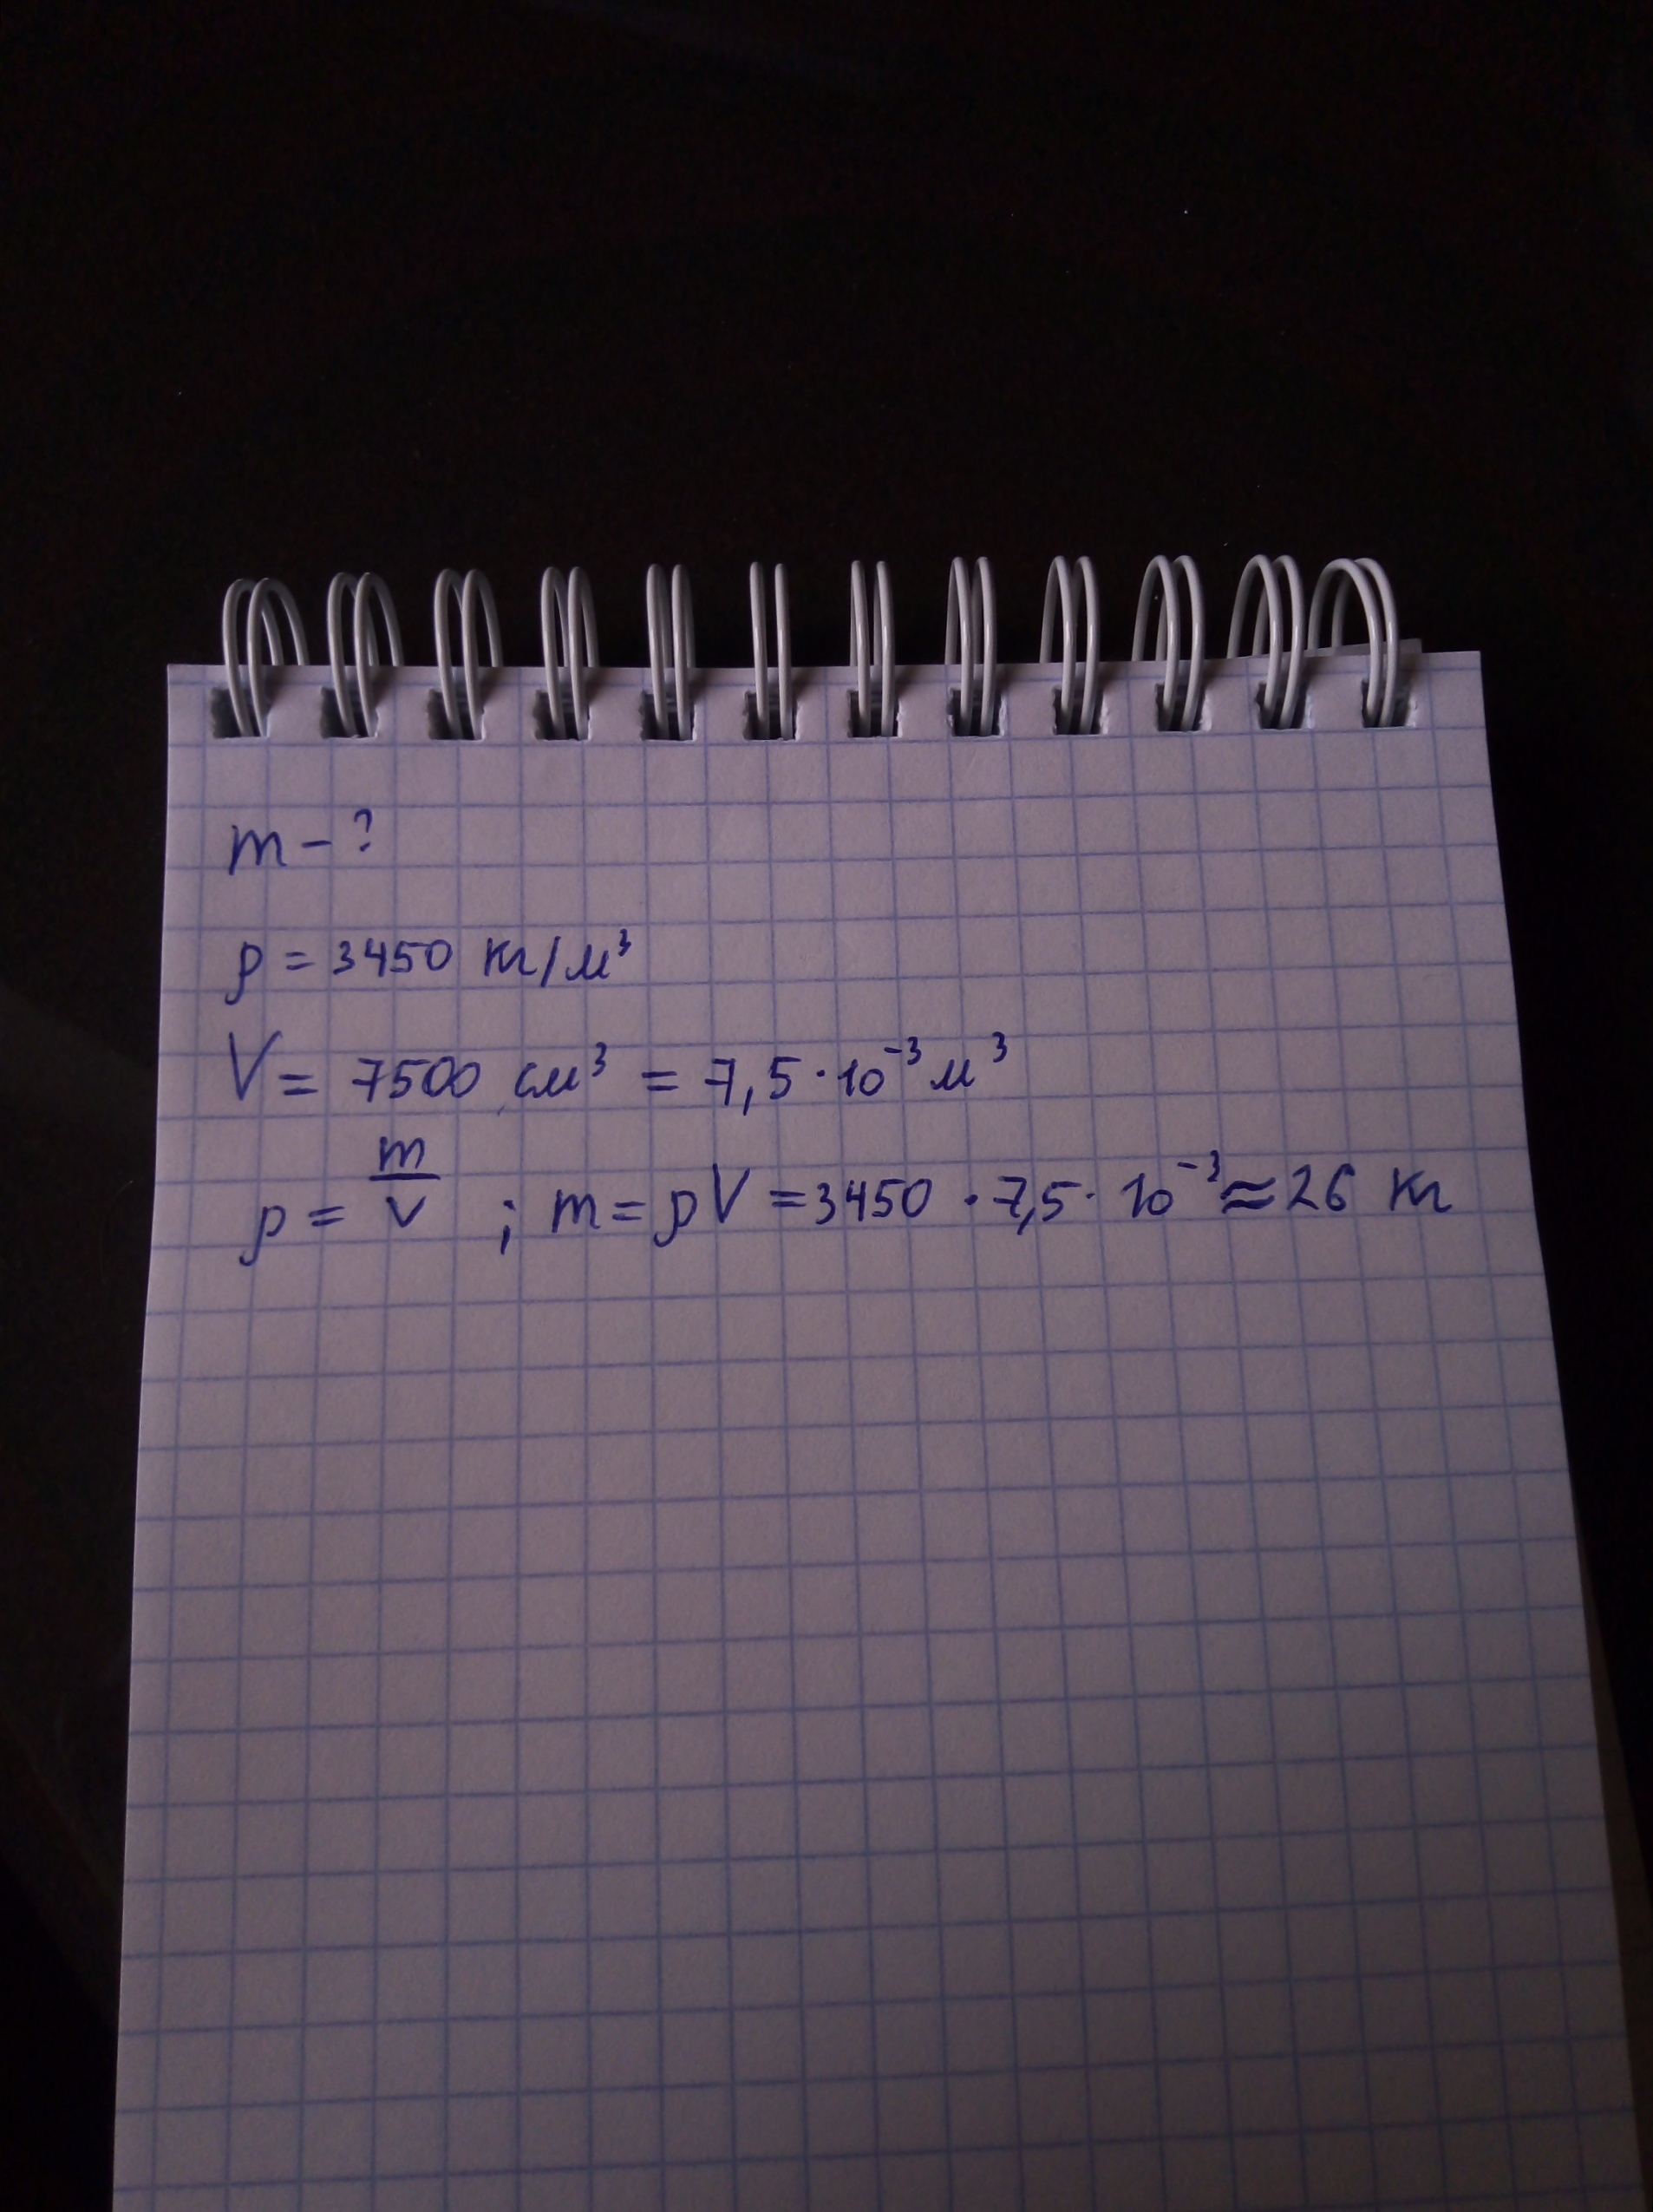 m - ?
ρ = 3450 кг/м³
V = 7500 см³ = 7,5 · 10⁻³ м³
ρ = m/V ; m = ρV = 3450 · 7,5 · 10⁻³ ≈ 26 кг